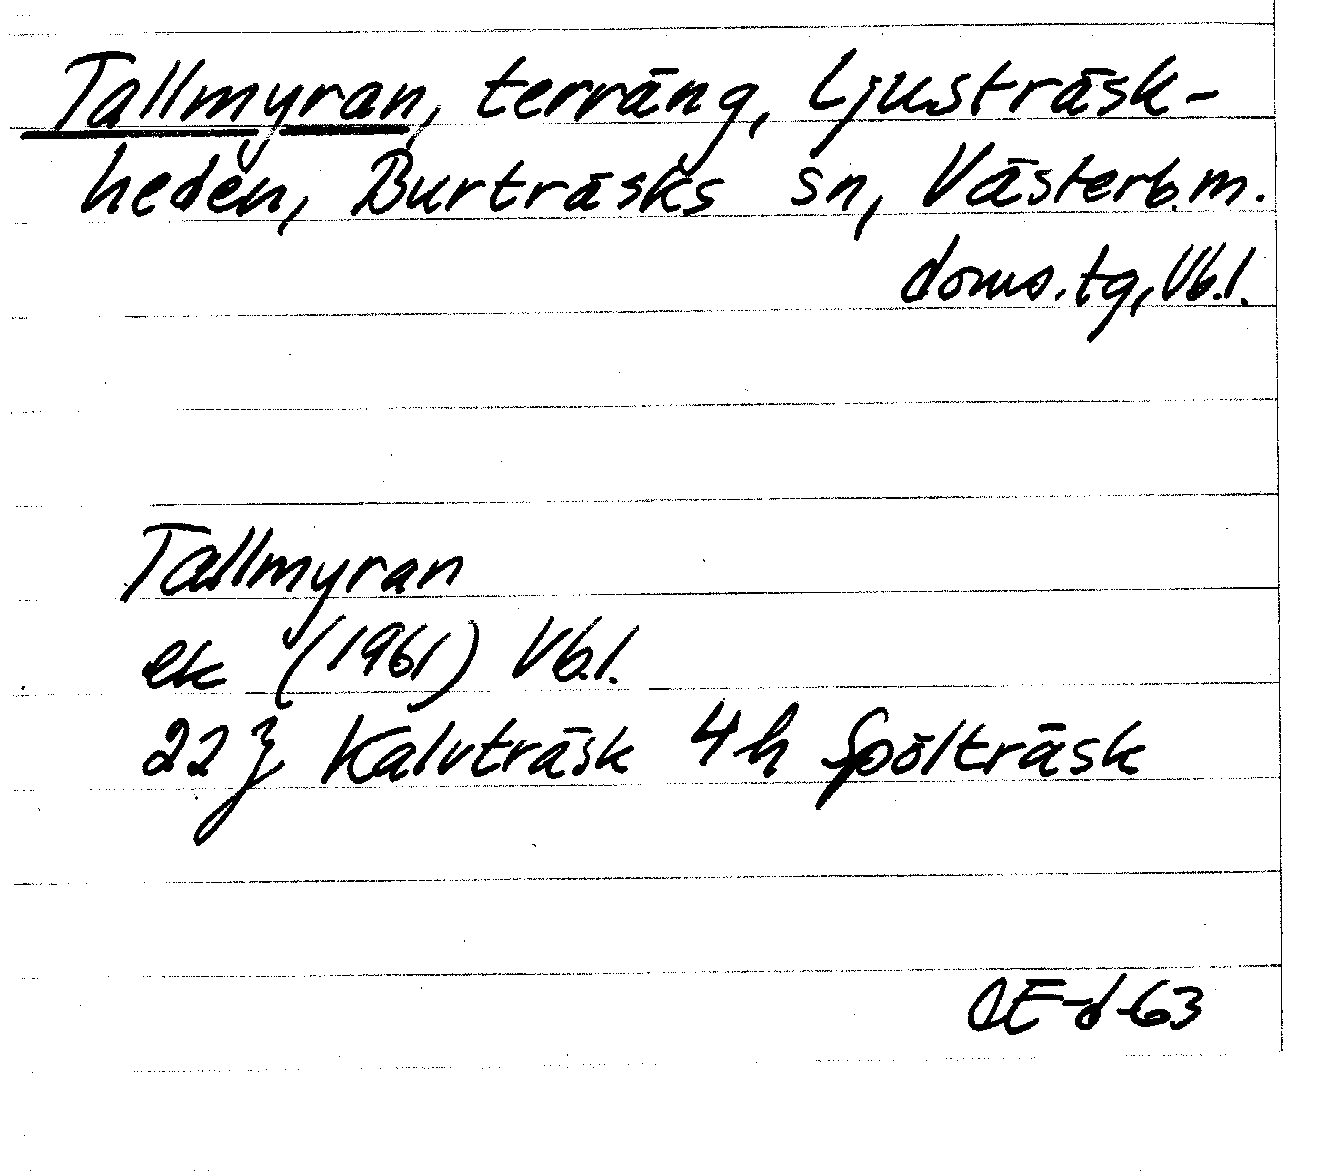 Tallmyran, terräng, Ljusträsk-
heden, Burträsks sn, Västerb.m.
doms.tg, Vb.l.
Tallmyran
ek (1961) Vb.l.
22J Kalvträsk 4h Spölträsk
CE-d-63